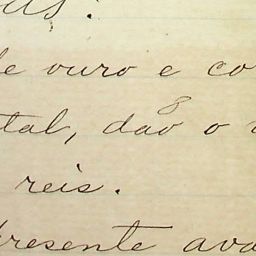 de ouro e co
tal, dão o
reis.
presente ava